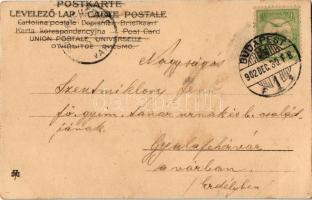 POSTKARTE
LEVELEZŐ LAP. — CARTE POSTALE
Cartolina postale - Dopisnice - Briefkaart
Karta korespondencyjna — Post Card
UNION POSTALE UNIVERSELLE
BUDAPEST
902 DEC. 30
Nagyságos
Szentmiklósy
főgym. tanár urnak és b. család
jának.
Gyulafehérvár
a várban.
/Erdélyben/